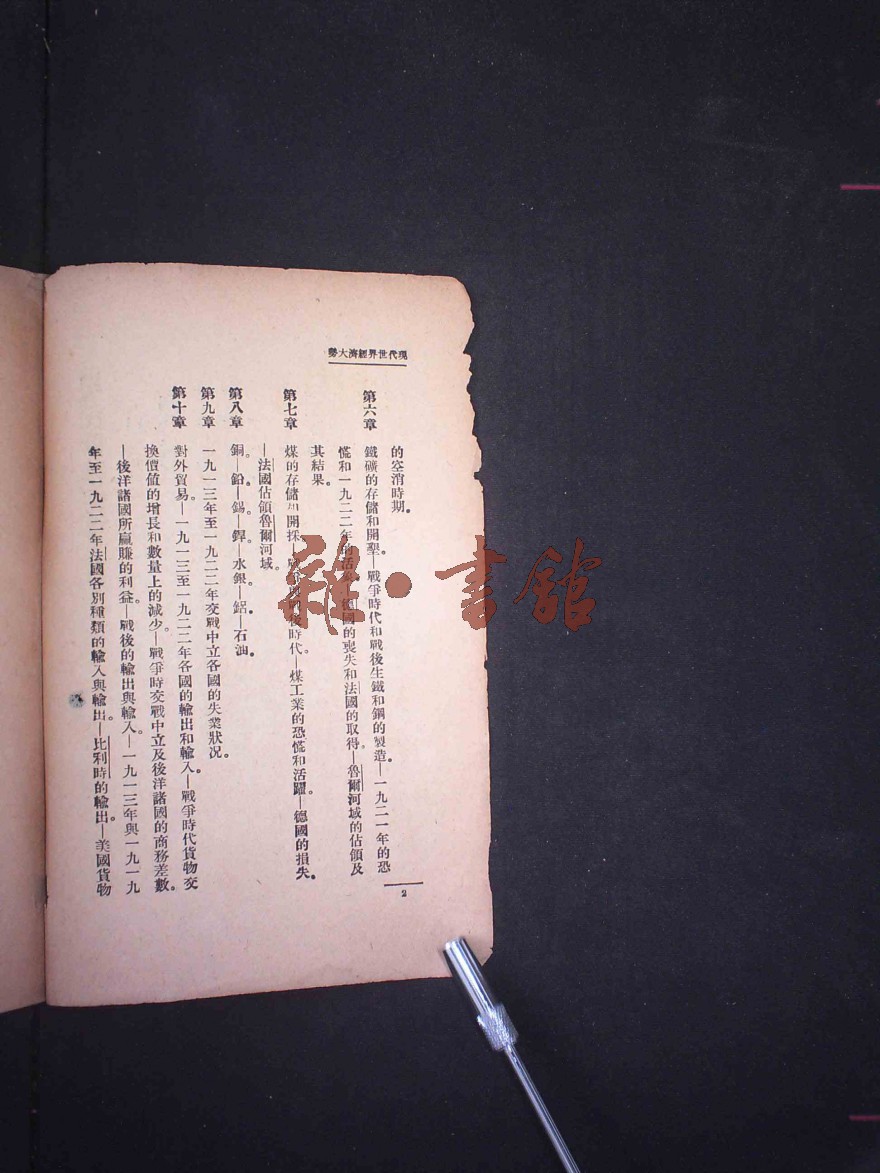 現代世界經濟大勢
的空消時期。
第六章 鐵礦的存儲和開鑿—戰爭時代和戰後生鐵和鋼的製造。—一九二一年的恐
慌和一九二二年的活 德國的喪失和法國的取得。—魯爾河域的佔領及
其結果。
第七章 煤的存儲 開採—戰爭與戰後時代—煤工業的恐慌和活躍。—德國的損失。
—法國佔領魯爾河域。
第八章 銅。—鉛。—錫。—鋅。—水銀。—鋁。—石油。
第九章 一九一三年至一九二二年交戰中立各國的失業狀况。
第十章 對外貿易。—一九一三至一九二二年各國的輸出和輸入。—戰爭時代貨物交
換價值的增長和數量上的減少。—戰爭時交戰中立及後洋諸國的商務差數。
—後洋諸國所贏賺的利益。—戰後的輸出與輸入。—一九一三年與一九一九
年至一九二二年法國各別種類的輸入與輸出。—比利時的輸出。—美國貨物
2
雜·書館